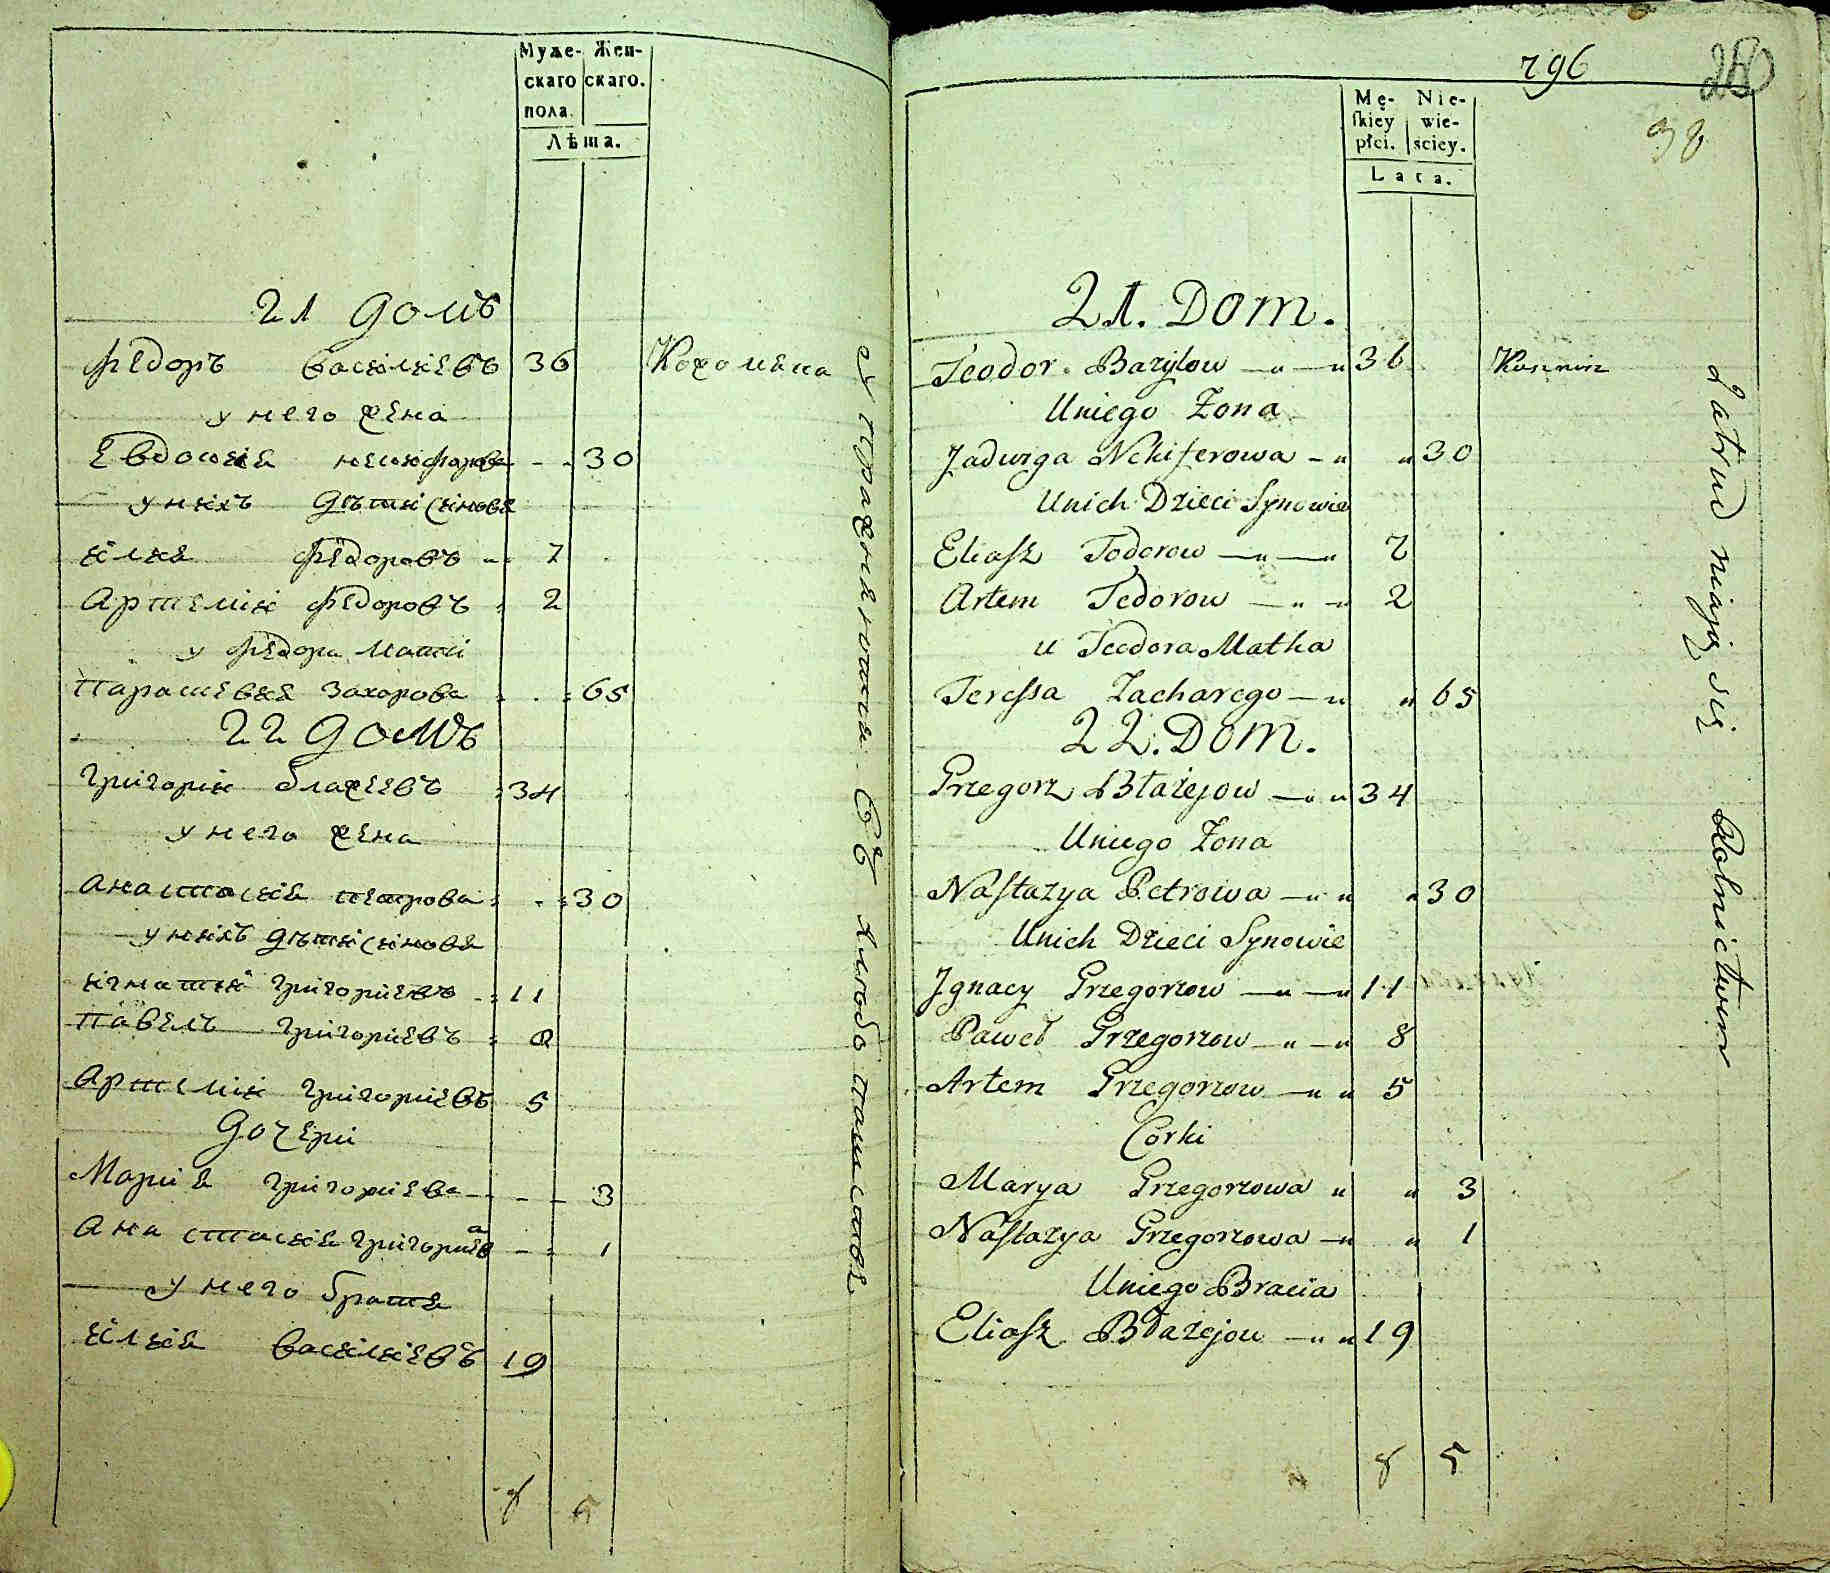 Муже- Жен-
скаго скаго.
пола.
Лѣта.
21 домъ
Федоръ Василиевъ 36
у него жена
Евдокия Никифорова - - 30
у нихъ дѣти синовя
илия Федоровъ - - 7
Артемий Федоровъ - 2
у Федора мати
Парасшевия Захорова - - 65
22 домъ
Григорий Блажеевъ 34
у него жена
Анастасия Петрова - - 30
у нихъ дѣти синовя
игнатий Григориевъ - 11
Павелъ Григориевъ - 8
Артемий Григориевъ 5
дочери
Мария Григориева - - - 3
Анастасия Григориева - - 1
у него братя
илия Василиевъ 19
8 5
упражняются въ хлебопашстве
796
38
Mę- Nie-
skiey wie-
płci. sciey.
Lata.
21. Dom.
Teodor Bazylow 36
Uniego Żona
Jadwiga Nikiferowa 30
Unich Dzieci Synowie
Eliasz Todorow 7
Artem Fedorow 2
u Teodora Matka
Teressa Zacharego 65
22. Dom.
Grzegorz Błażejow 34
Uniego Żona
Nastazya Petrowa 30
Unich Dzieci Synowie
Jgnacy Grzegorzow 11
Paweł Grzegorzow 8
Artem Grzegorzow 5
Corki
Marya Grzegorzowa 3
Nastazya Grzegorzowa 1
Uniego Bracia
Eliasz Błażejow 19
8 5
Zatrud niają się Rolnictwem